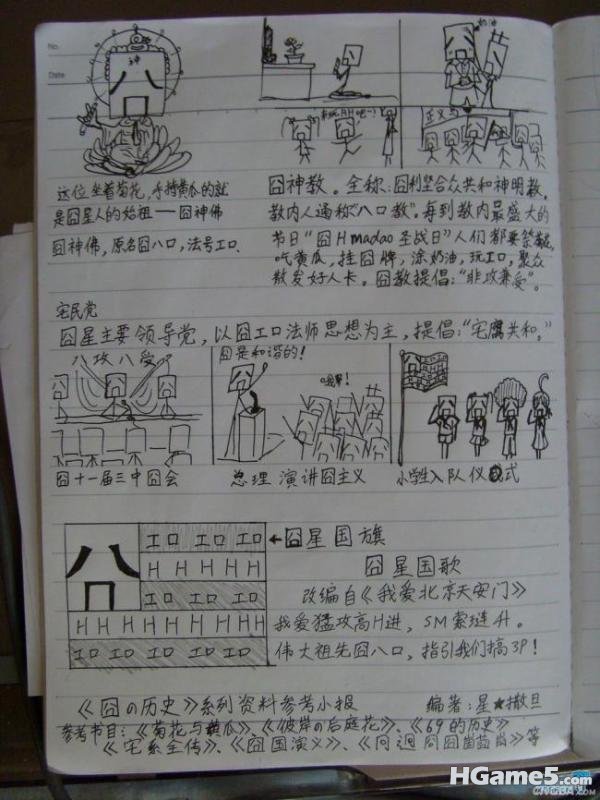 No.
Date
神
奶油
来玩AH吧～!
正义号
这位坐着菊花,手持黄瓜的就
是囧星人的始祖——囧神佛
囧神佛,原名囧八口,法号エロ.
囧神教.全称:囧利坚合众共和神明教.
教内人通称“八口教”.每到教内最盛大的
节日“囧H madao圣战日”人们都要祭菊花,
吃黄瓜,挂囧牌,涂奶油,玩エロ,聚众
散发好人卡.囧教提倡:“非攻兼受”。
宅民党
囧星主要领导党,以囧エロ法师思想为主,提倡:“宅腐共和。”
八攻八受
囧是和谐的!
囧十一届三中囧会
总理 演讲囧主义
小学生入队仪式
エロ エロ エロ
H H H H H
エロ エロ エロ
H H H H H H H H
エロ エロ エロ エロ エロ
←囧星国旗
囧星国歌
改编自《我爱北京天安门》
我爱猛攻高H进,SM索琏4H.
伟大祖先囧八口,指引我们搞3P!
《囧の历史》系列资料参考小报 编著:星★撒旦
参考书目:《菊花与黄瓜》、《彼岸の后庭花》、《69的历史》
《宅系全传》、《囧国演义》、
等
HGame5.com